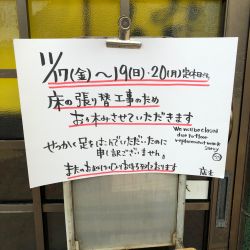 11/17(金)～19(日)・20(月)定休日
床の張り替え工事のため
お休みさせていただきます
We will be closed
due to floor
replacement work
Sorry
せっかく足をはこんでいただいたのに
申し訳ございません。
またのお越しを心よりお待ちしております
店主